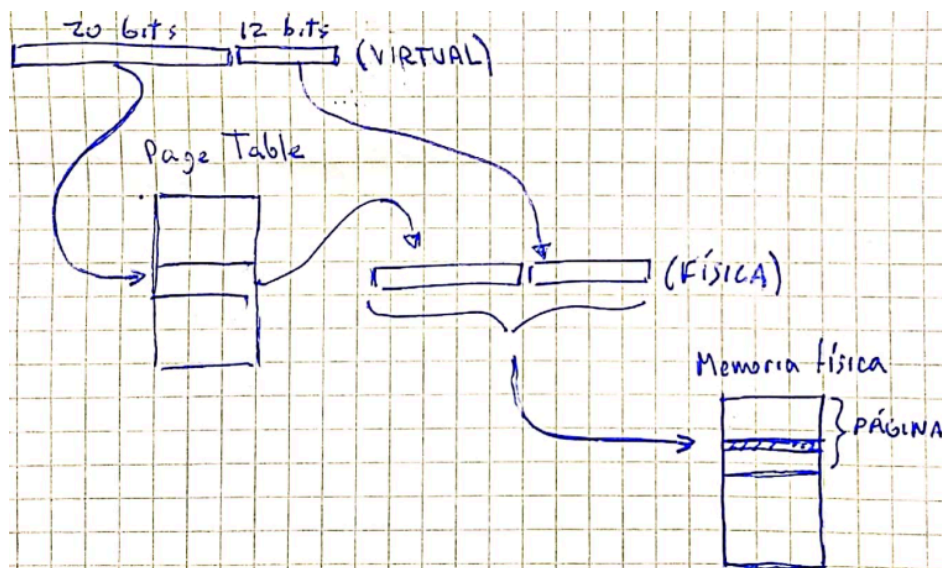 20 bits 12 bits
(VIRTUAL)
Page Table
(FÍSICA)
Memoria física
PÁGINA